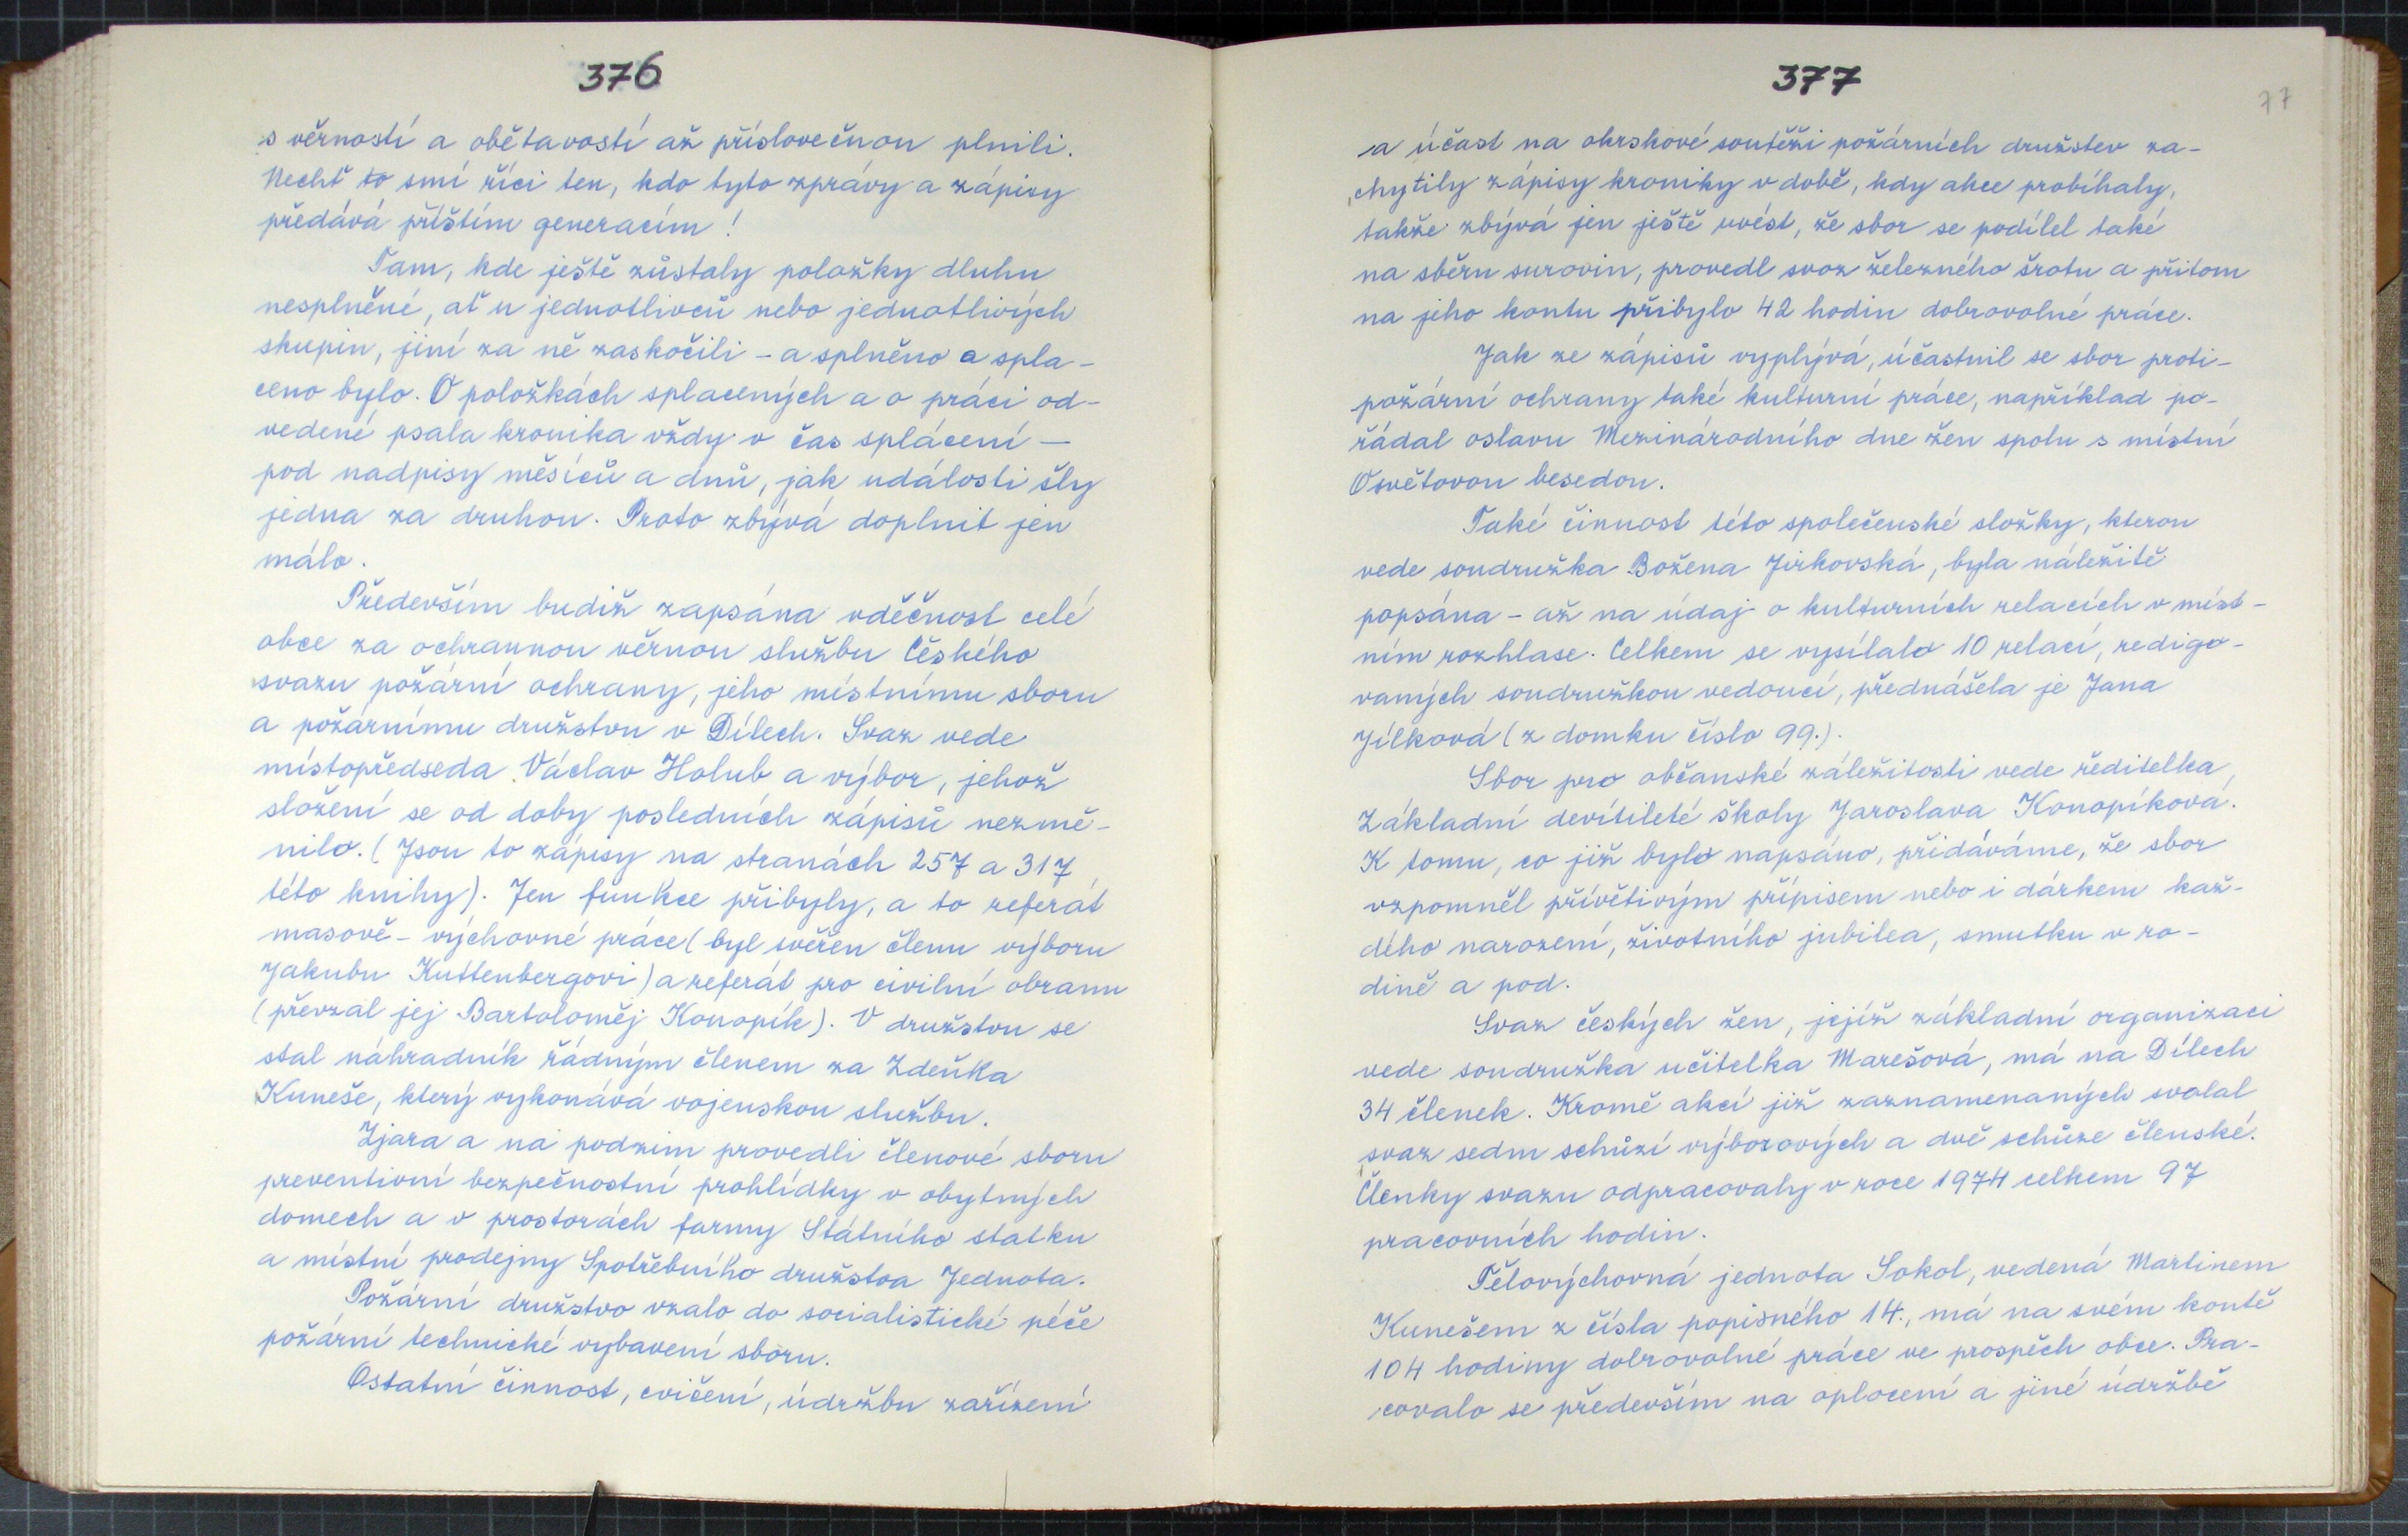 376
s věrností a obětavostí až příslovečnou plnili.
Nechť to smí říci ten, kdo tyto zprávy a zápisy
předává příštím generacím!
Tam, kde ještě zůstaly položky dluhu
nesplněné, ať u jednotlivců nebo jednotlivých
skupin, jiní za ně zaskočili - a splněno a spla-
ceno bylo. O položkách splacených a o práci od-
vedené psala kronika vždy v čas splácení —
pod nadpisy měsíců a dnů, jak události šly
jedna za druhou. Proto zbývá doplnit jen
málo.
Především budiž zapsána vděčnost celé
obce za ochrannou věrnou službu Českého
svazu požární ochrany, jeho místnímu sboru
a požárnímu družstvu v Dílech. Svaz vede
místopředseda Václav Holub a výbor, jehož
složení se od doby posledních zápisů nezmě-
nilo. (Jsou to zápisy na stranách 257 a 317
této knihy). Jen funkce přibyly, a to referát
masově - výchovné práce (byl svěřen členu výboru
Jakubu Kuttenbergovi) a referát pro civilní obranu
(převzal jej Bartoloměj Konopík). V družstvu se
stal náhradník řádným členem za Zdeňka
Kuneše, který vykonává vojenskou službu.
Zjara a na podzim provedli členové sboru
preventivní bezpečnostní prohlídky v obytných
domech a v prostorách farmy Státního statku
a místní prodejny Spotřebního družstva Jednota.
Požární družstvo vzalo do socialistické péče
požární technické vybavení sboru.
Ostatní činnost, cvičení, údržbu zařízení
377
77
a účast na okrskové soutěži požárních družstev za-
chytily zápisy kroniky v době, kdy akce probíhaly,
takže zbývá jen ještě uvést, že sbor se podílel také
na sběru surovin, provedl svoz železného šrotu a přitom
na jeho kontu přibylo 42 hodin dobrovolné práce.
Jak ze zápisů vyplývá, účastnil se sbor proti-
požární ochrany také kulturní práce, například po-
řádal oslavu Mezinárodního dne žen spolu s místní
Osvětovou besedou.
Také činnost této společenské složky, kterou
vede soudružka Božena Jirkovská, byla náležitě
popsána - až na údaj o kulturních relacích v míst-
ním rozhlase. Celkem se vysílalo 10 relací, redigo-
vaných soudružkou vedoucí, přednášela je Jana
Jílková (z domku číslo 99.).
Sbor pro občanské záležitosti vede ředitelka
Základní devítileté školy Jaroslava Konopíková.
K tomu, co již bylo napsáno, přidáváme, že sbor
vzpomněl přívětivým přípisem nebo i dárkem kaž-
dého narození, životního jubilea, smutku v ro-
dině a pod.
Svaz českých žen, jejíž základní organizaci
vede soudružka učitelka Marešová, má na Dílech
34 členek. Kromě akcí již zaznamenaných svolal
svaz sedm schůzí výborových a dvě schůze členské.
Členky svazu odpracovaly v roce 1974 celkem 97
pracovních hodin.
Tělovýchovná jednota Sokol, vedená Martinem
Kunešem z čísla popisného 14., má na svém kontě
104 hodiny dobrovolné práce ve prospěch obce. Pra-
covalo se především na oplocení a jiné údržbě